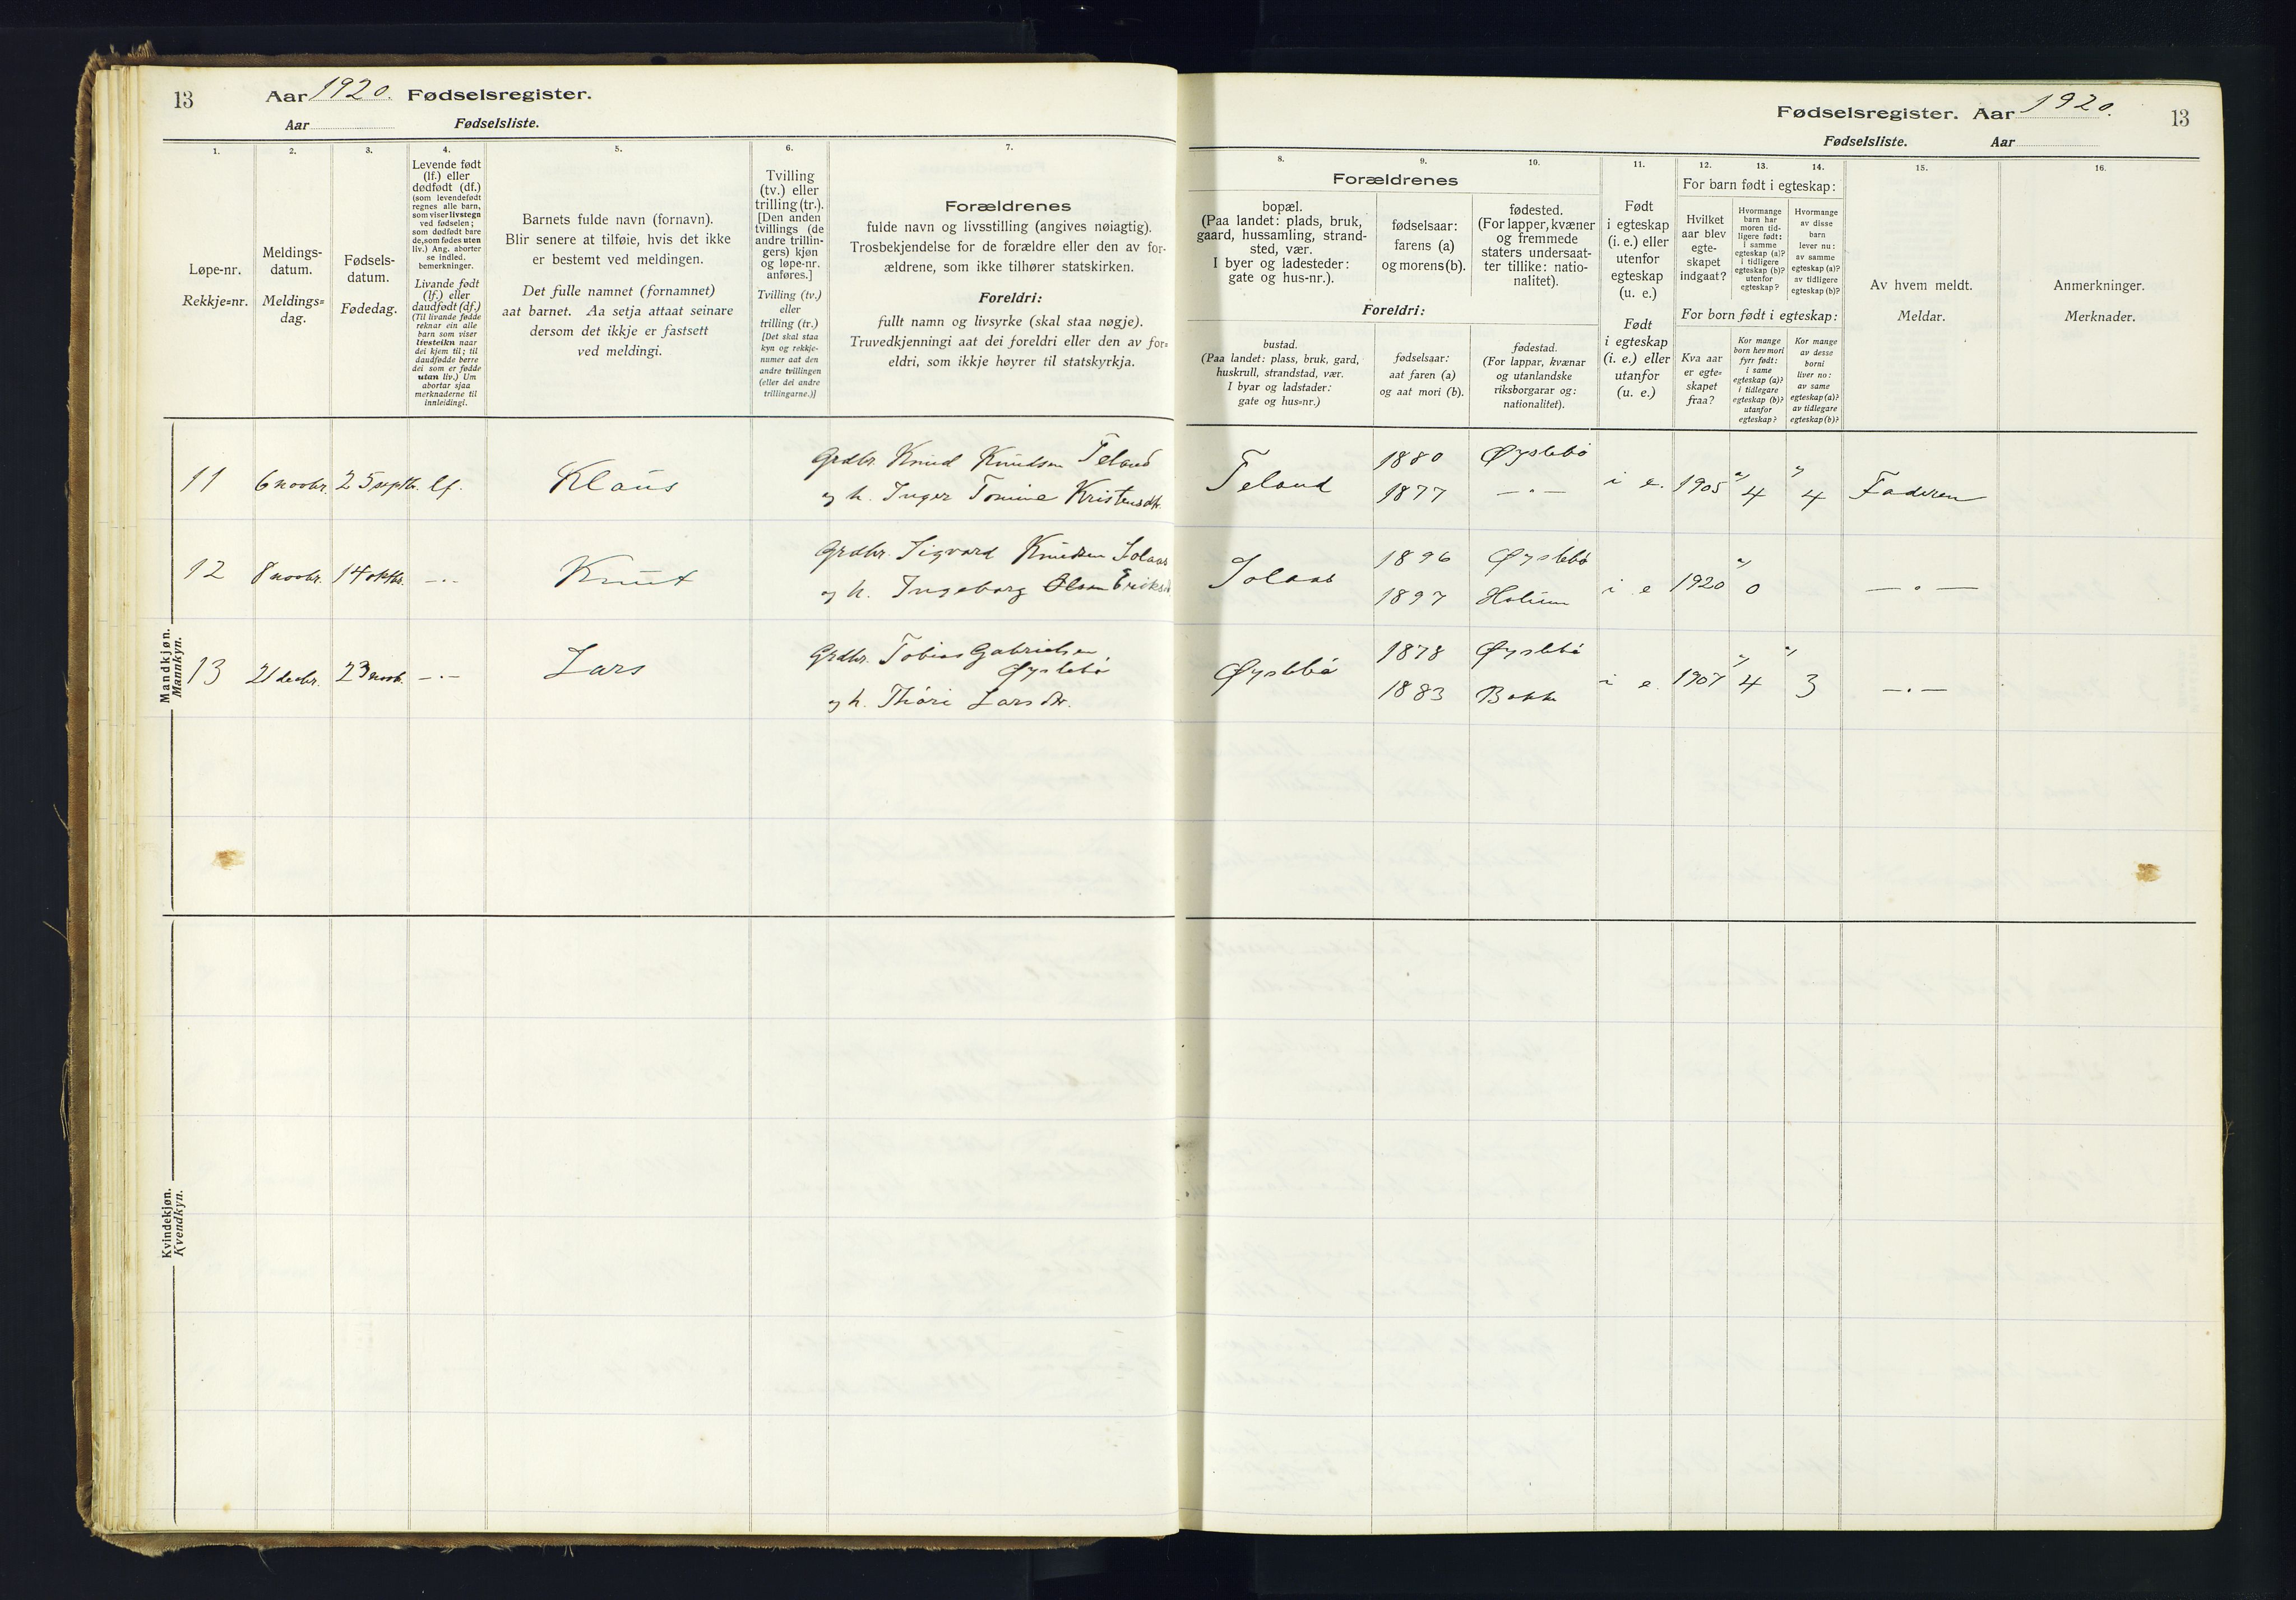 13 Aar 1920. Fødselsregister.
Aar Fødselsliste.
1.
2.
3.
4.
5.
6.
7.
Løpe-nr.
Rekkje=nr.
Meldings-
datum.
Meldings=
dag.
Fødsels-
datum.
Fødedag.
Levende født
(lf.) eller
dødfødt (df.)
(som levendefødt
regnes alle barn,
som viser livstegn
ved fødselen;
som dødfødt bare
de, som fødes uten
liv.) Ang. aborter
se indled.
bemerkninger.
Livande født
(lf.) eller
daudfødt (df.)
(Til livande fødde
reknar ein alle
barn som viser
livsteikn naar
dei kjem til; til
daudfødde berre
dei som er fødde
utan liv.) Um
abortar sjaa
merknaderne til
innleidingi.
Barnets fulde navn (fornavn).
Blir senere at tilføie, hvis det ikke
er bestemt ved meldingen.
Det fulle namnet (fornamnet)
aat barnet. Aa setja attaat seinare
dersom det ikkje er fastsett
ved meldingi.
Tvilling
(tv.) eller
trilling (tr.).
[Den anden
tvillings (de
andre trillin-
gers) kjøn
og løpe-nr.
anføres.]
Tvilling (tv.)
eller
trilling (tr.)
[Det skal staa
kyn og rekkje-
numer aat den
andre tvillingen
(eller dei andre
trillingarne.)]
Forældrenes
fulde navn og livsstilling (angives nøiagtig).
Trosbekjendelse for de forældre eller den av for-
ældrene, som ikke tilhører statskirken.
Foreldri:
fullt namn og livsyrke (skal staa nøgje).
Truvedkjenningi aat dei foreldri eller den av for=
eldri, som ikkje høyrer til statskyrkja.
Mandkjøn.
Mannkyn.
11 6 novbr. 25 septbr. lf. Klaus Grdbr. Knud Knudsen Feland
og h. Inger Tomine Kristensdtr.
12 8 novbr. 14 oktbr. —.— Knut Grdbr. Sigvard Knudsen Solaas
og h. Ingeborg Olsen Eriksd.
13 21 decbr. 23 novb. —.— Lars Grdbr. Tobias Gabrielsen
Øyslebø
og h. Thóri Larsdtr.
Kvindekjøn.
Kvendkyn.
Fødselsregister. Aar 1920. 13
Fødselsliste. Aar
8.
9.
10.
11.
12.
13.
14.
15.
16.
Forældrenes
bopæl.
(Paa landet: plads, bruk,
gaard, hussamling, strand-
sted, vær.
I byer og ladesteder:
gate og hus-nr.).
fødselsaar:
farens (a)
og morens (b).
fødested.
(For lapper, kvæner
og fremmede
staters undersaat-
ter tillike: natio-
nalitet).
Foreldri:
bustad.
(Paa landet: plass, bruk, gard,
huskrull, strandstad, vær.
I byar og ladstader:
gate og hus=nr.)
fødselsaar:
aat faren (a)
og aat mori (b).
fødestad.
(For lappar, kvænar
og utanlandske
riksborgarar og:
nationalitet).
Født
i egteskap
(i. e.) eller
utenfor
egteskap
(u. e.)
Født
i egteskap
(i. e.) eller
utanfor
(u. e.)
For barn født i egteskap:
Hvilket
aar blev
egte-
skapet
indgaat?
Hvormange
barn har
moren tid-
ligere født:
i samme
egteskap (a)?
i tidligere
egteskap (b)?
utenfor
egteskap?
Hvormange
av disse
barn
lever nu:
av samme
egteskap (a)?
av tidligere
egteskap (b)?
For born født i egteskap:
Kva aar
er egte=
skapet
fraa?
Kor mange
born hev mori
fyrr født:
i same
egteskap (a)?
i tidlegare
egteskap (b)?
utanfor
egteskap?
Kor mange
av desse
borni
liver no:
av same
egteskap (a)?
av tidlegare
egteskap (b)?
Av hvem meldt.
Meldar.
Anmerkninger.
Merknader.
Feland 1880 Øyslebø i e. 1905 4 4 Faderen
1877 —.—
Solaas 1896 Øyslebø i e 1920 0 —.—
1897 Holum
Øyslebø 1878 Øyslebø i e. 1907 4 3 —.—
1883 Bakke